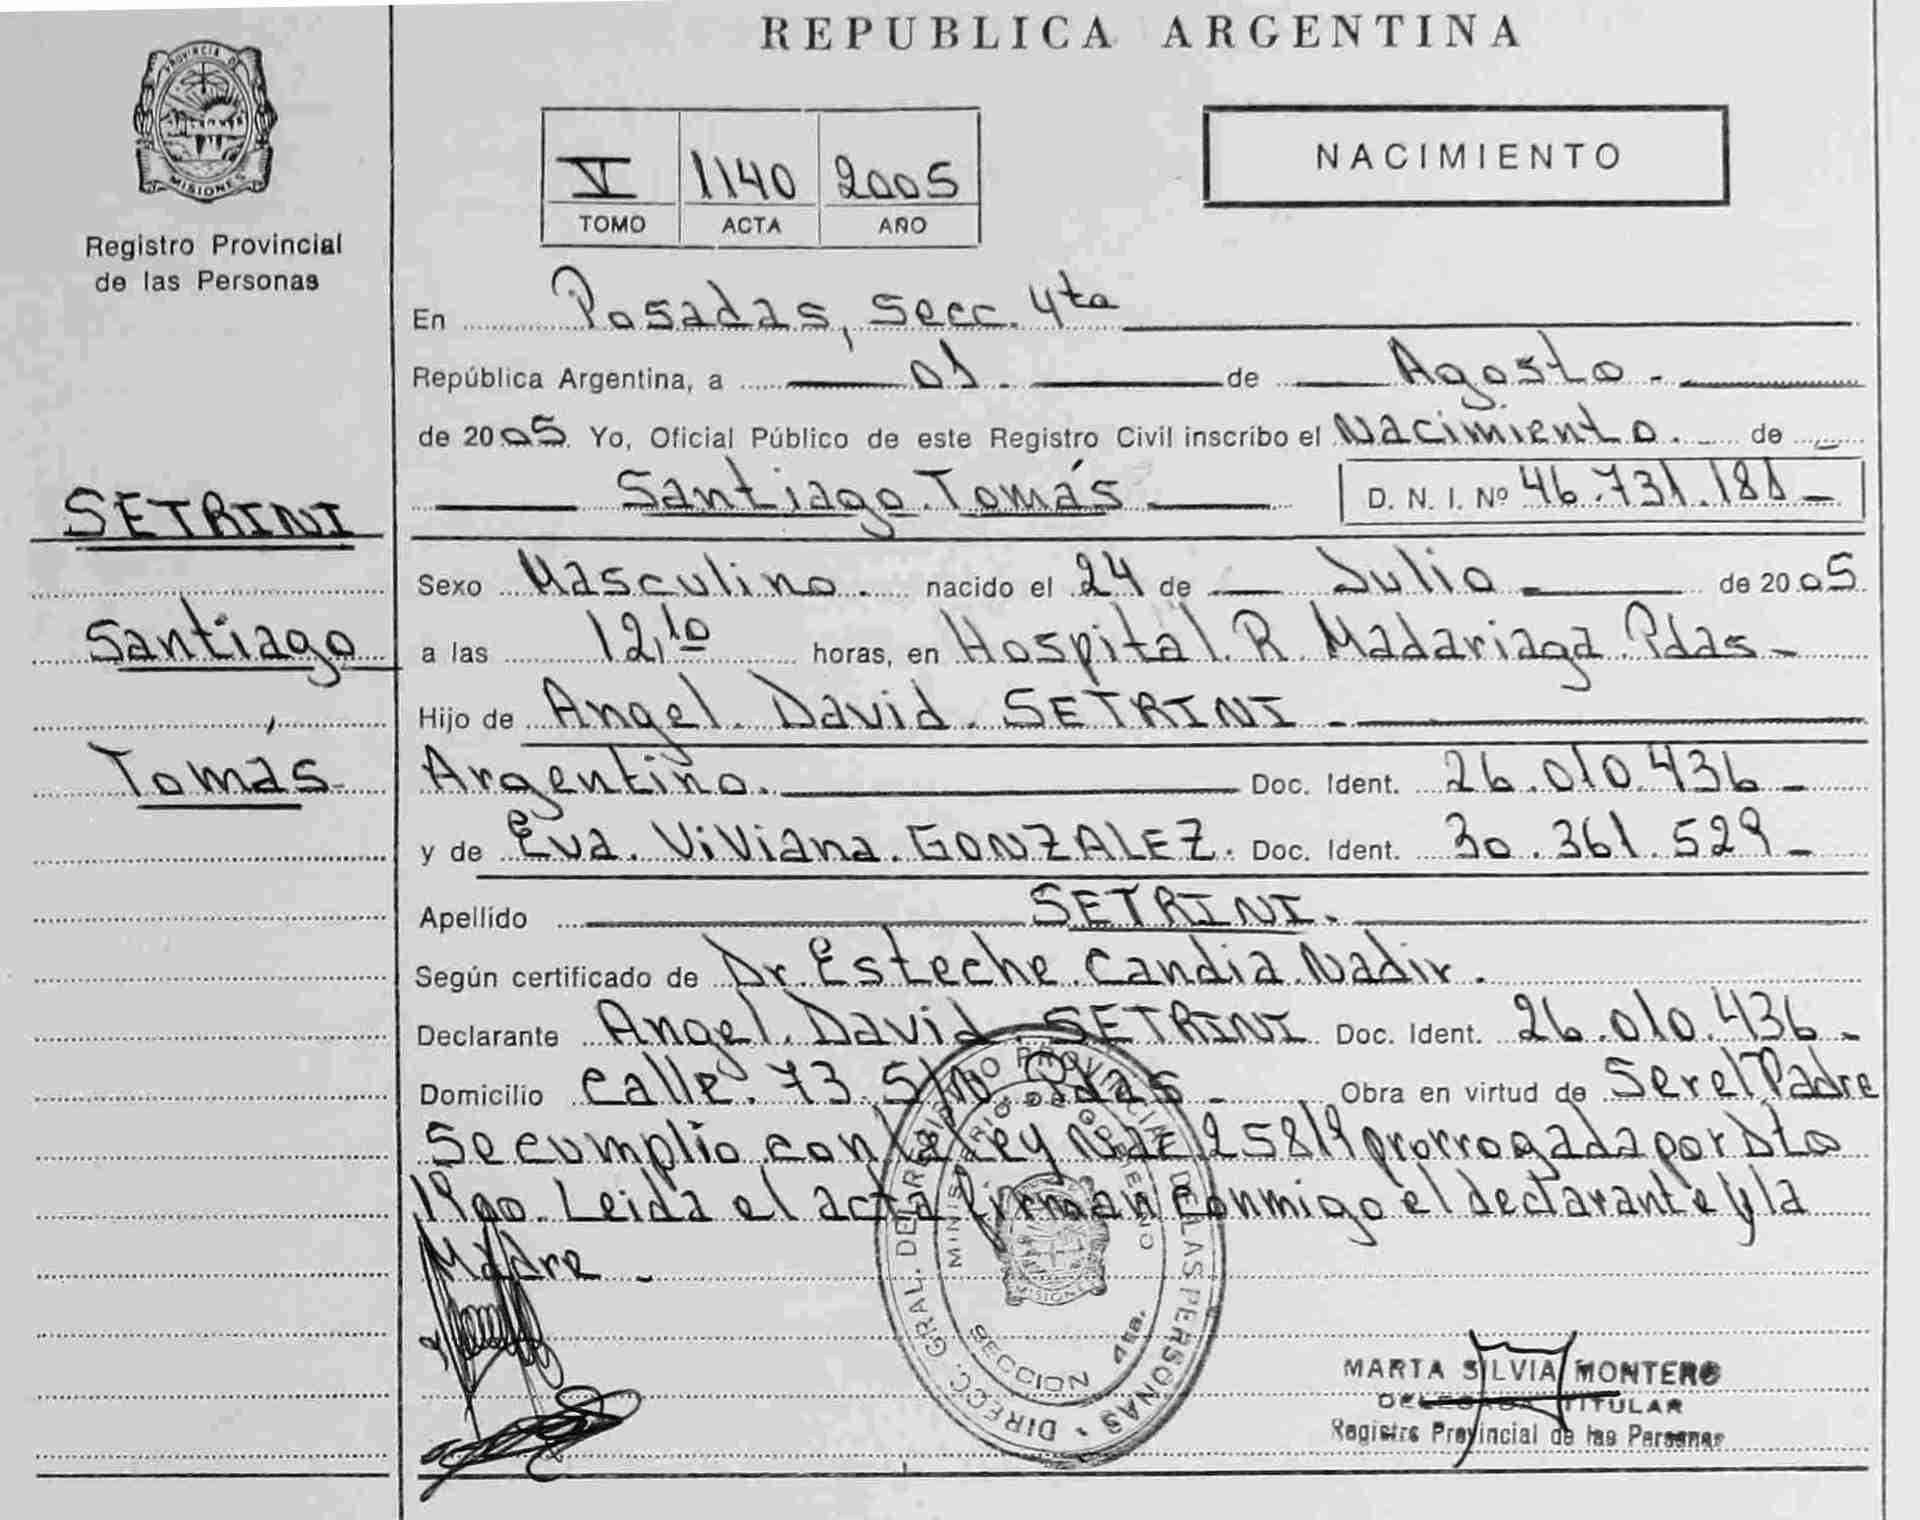 REPUBLICA ARGENTINA
PROVINCIA DE
MISIONES
Registro Provincial
de las Personas
V 1140 2005
TOMO ACTA AÑO
NACIMIENTO
En Posadas, Secc. 4ta
República Argentina, a 01 de Agosto
de 2005 Yo, Oficial Público de este Registro Civil inscribo el Nacimiento. de
Santiago Tomás D. N. I. Nº 46.731.181
SETRINI
Santiago
Tomás
Sexo Masculino. nacido el 24 de Julio de 2005
a las 12,10 horas, en Hospital R. Madariaga Pdas
Hijo de Angel David SETRINI
Argentino. Doc. Ident. 26.010.436
y de Eva Viviana GONZALEZ. Doc. Ident. 30.361.529
Apellido SETRINI.
Según certificado de Dr. Esteche Candia Nadir.
Declarante Angel David SETRINI Doc. Ident. 26.010.436
Domicilio Calle 73 S/N Pdas Obra en virtud de Ser el Padre
Se cumplio con la Ley Nac 25819 prorrogada por Dto
Leida el acta firman conmigo el declarante y la
Madre
DIRECC. GRAL. DEL REGISTRO PROVINCIAL DE LAS PERSONAS
MINISTERIO DE GOBIERNO
MISIONES
SECCION 4ta.
MARTA SILVIA MONTERO
DELEGADA TITULAR
Registro Provincial de las Personas